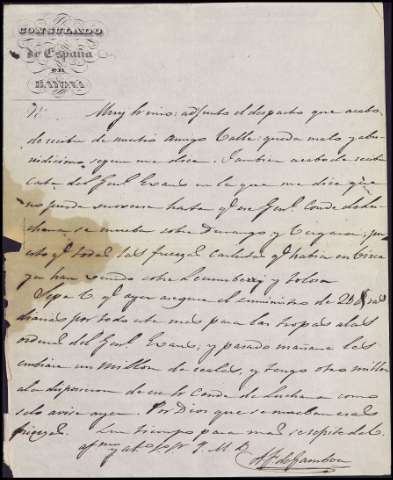 CONSULADO
de España
en
BAYONA
Muy Sr mio: adjunto el despacho que acabo
de recibir de nuestro amigo Valle: queda malo y abu-
rridisimo segun me dice. Tambien acabo de recibir
carta del Genl Evans en la que me dice que
no puede moverse hasta q el Genl Conde de Lu-
chana se mueba sobre Durango y Vergara, pu-
esto q todas las fuerzas carlistas q habia en
yan han venido sobre Lecumberry y Tolosa
Sepa V q ayer asegure el suministro de
diarias por todo este mes para las tropas a las
ordenes del Genl Evans; y pasado mañana les
enviare un millon de reales, y tengo otro millon
a la disposicion de el Conde de Luchana como
se lo avise ayer. Por Dios que se muevan esas
fuerzas. Sin tiempo para mas se repite de V.
afmo y Q. B. S. M.
de Gamboa